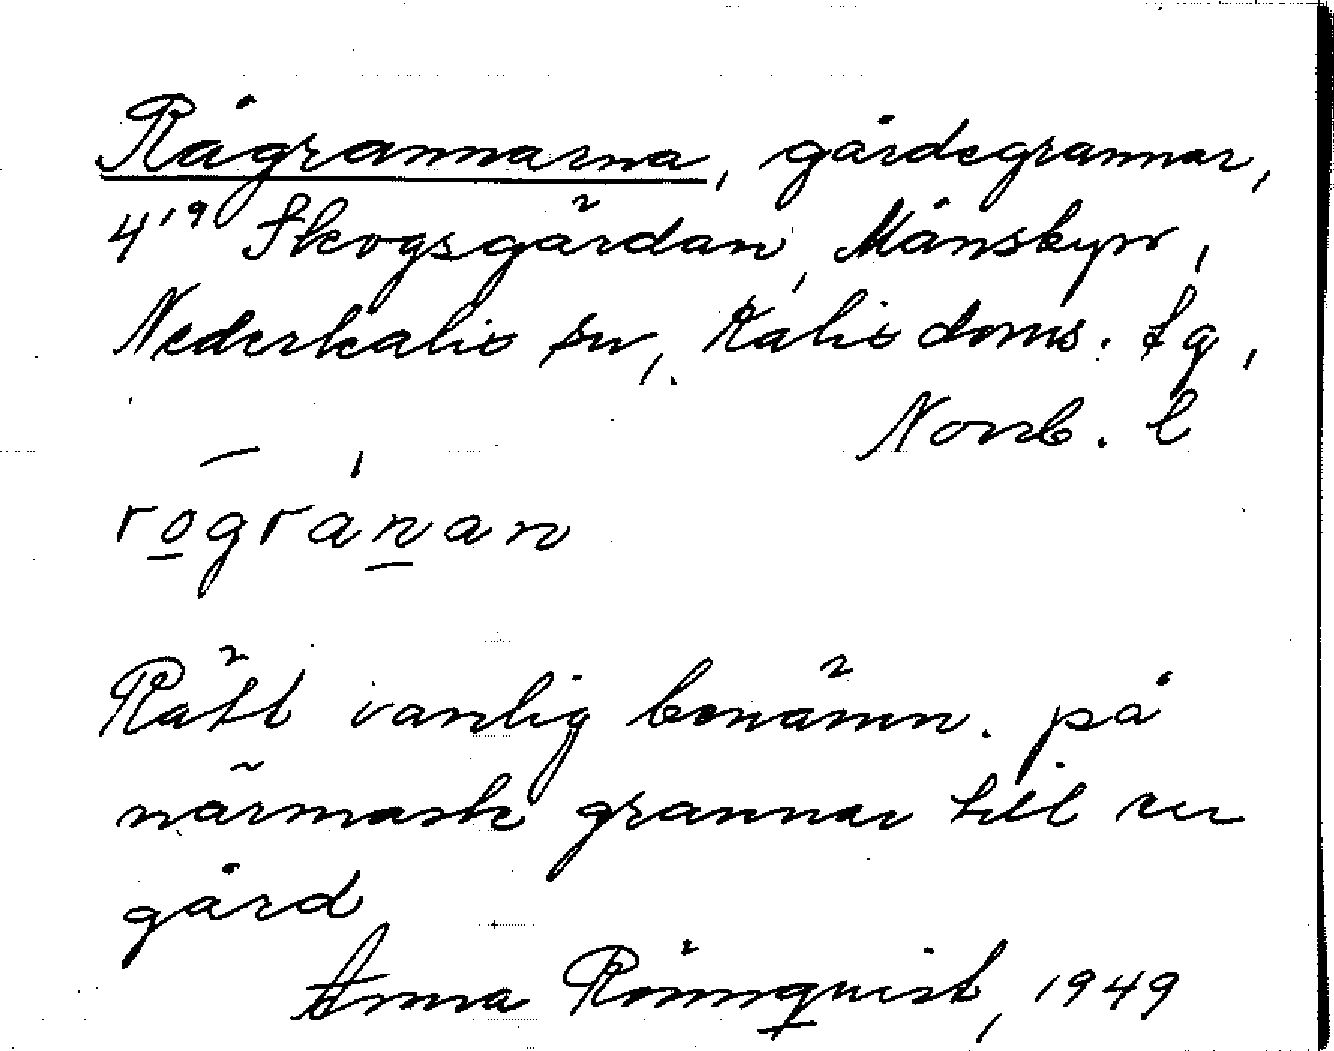 Rågrannarna, gårdegrannar,
4¹⁹ Skogsgärdan, Månsbyn,
Nederkalix sn, Kalix doms. tg,
Norrb. l
rogránan
Rätt vanlig benämn. på
närmaste grannar till en
gård
Anna Rönnquist, 1949